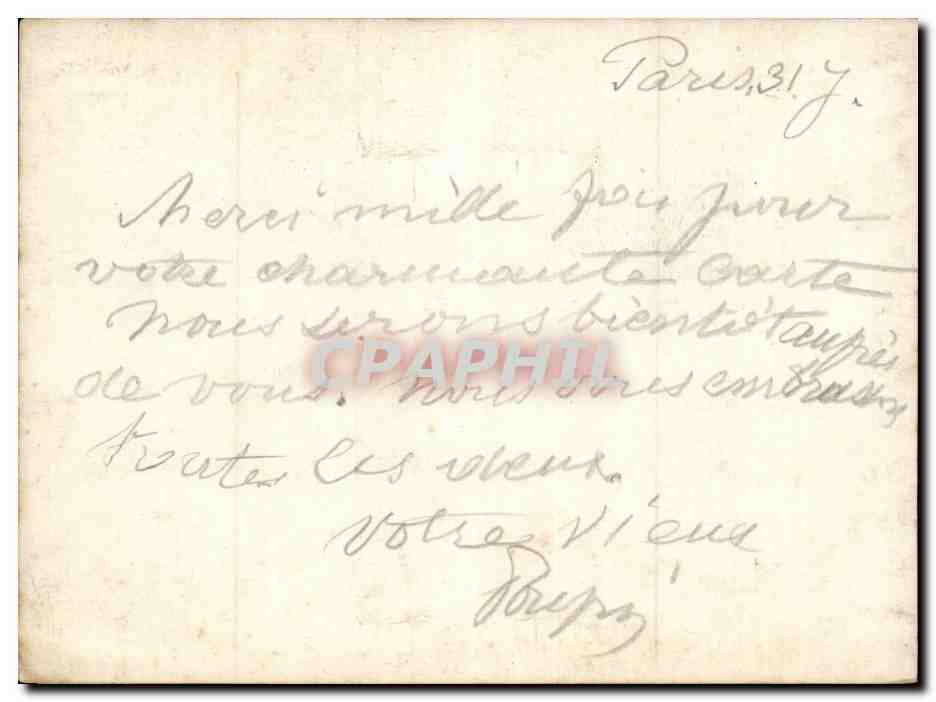 Paris. 31. J.
Merci mille fois pour
votre charmante carte
Nous serons bientôt auprès
de vous. Nous vous embrassons
CPAPHIL
toutes les deux.
Votre vieux